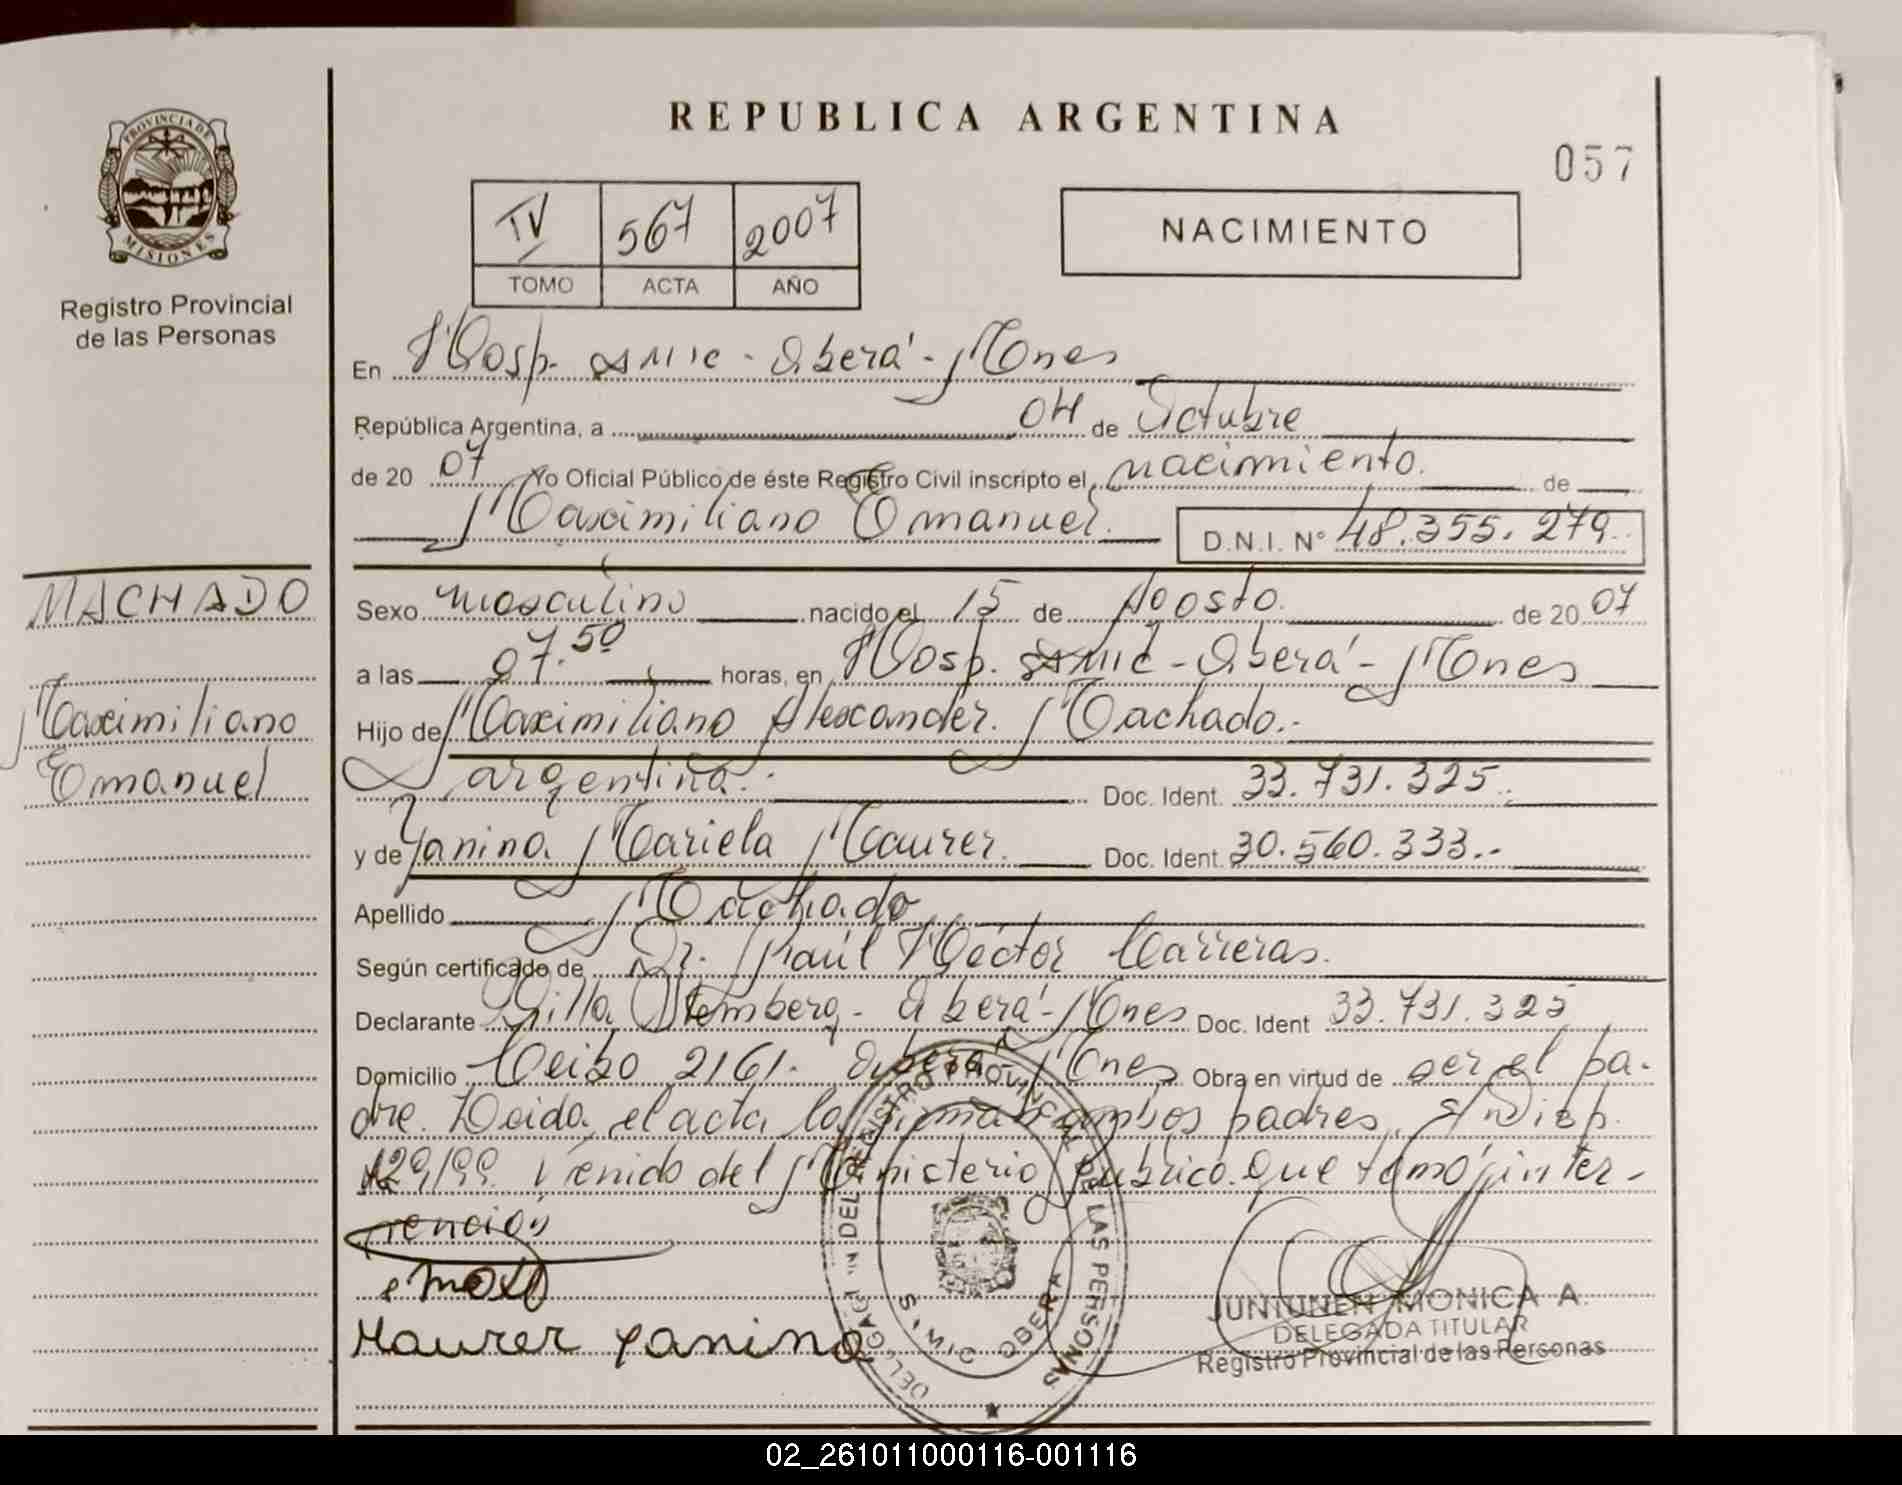 REPUBLICA ARGENTINA
057
PROVINCIA DE MISIONES
Registro Provincial
de las Personas
IV 567 2007
TOMO ACTA AÑO
NACIMIENTO
En Hosp. SAMIC - Oberá - Mnes
República Argentina, a 04 de Octubre
de 2007 Yo Oficial Público de éste Registro Civil inscripto el nacimiento. de
Maximiliano Emanuel. D.N.I. N° 48.355.279.
MACHADO
Maximiliano
Emanuel
Sexo masculino nacido el 15 de Agosto. de 2007
a las 07.50 horas, en Hosp. SAMIC - Oberá - Mnes
Hijo de Maximiliano Alexander. Machado.-
argentina. Doc. Ident. 33.731.325.
y de Yanina Mariela Maurer. Doc. Ident. 30.560.333.-
Apellido Machado
Según certificado de Dr. Raúl Héctor Carreras.
Declarante Villa Stemberg - Oberá - Mnes Doc. Ident 33.731.325
Domicilio Ceibo 2161. Oberá Mnes Obra en virtud de ser el pa-
dre. Leida el acta la firman ambos padres, s/Disp.
129/99. Venido del Ministerio Publico que tomó inter-
vención
Maurer Yanina
DELEGACION DEL REGISTRO PROVINCIAL DE LAS PERSONAS
OBERA
JUNIUNEN MONICA A.
DELEGADA TITULAR
Registro Provincial de las Personas
02_261011000116-001116